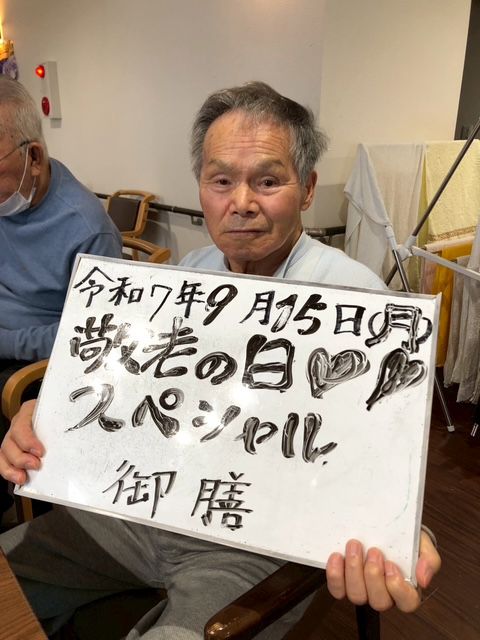 令和7年9月15日(月)
敬老の日♡♡
スペシャル
御膳